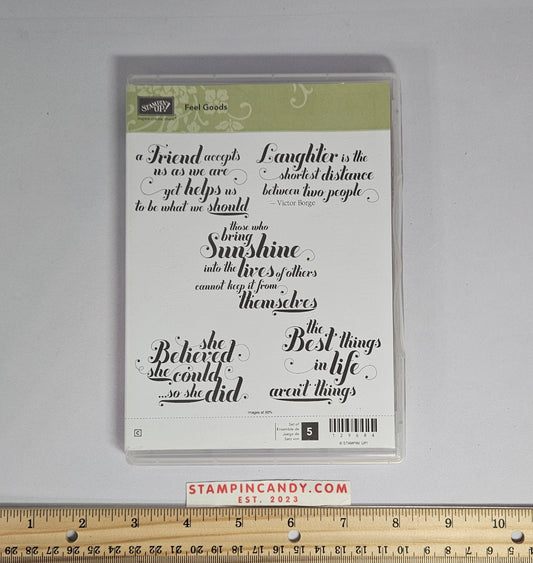 STAMPIN' UP!
Feel Goods
a Friend accepts
us as we are
yet helps us
to be what we should
Laughter is the
shortest distance
between two people
— Victor Borge
those who
bring
Sunshine
into the lives of others
cannot keep it from
themselves
she
Believed
she could
...so she did
the
Best things
in life
aren't things
Images at 60%
Set of
Ensemble de
Juego de
Satz von
5
129684
© STAMPIN' UP!
C
STAMPINCANDY.COM
EST. 2023
1 2 3 4 5 6 7 8 9 10
29 28 27 26 25 24 23 22 21 20 19 18 17 16 15 14 13 12 11 10 9 8 7 6 5 4